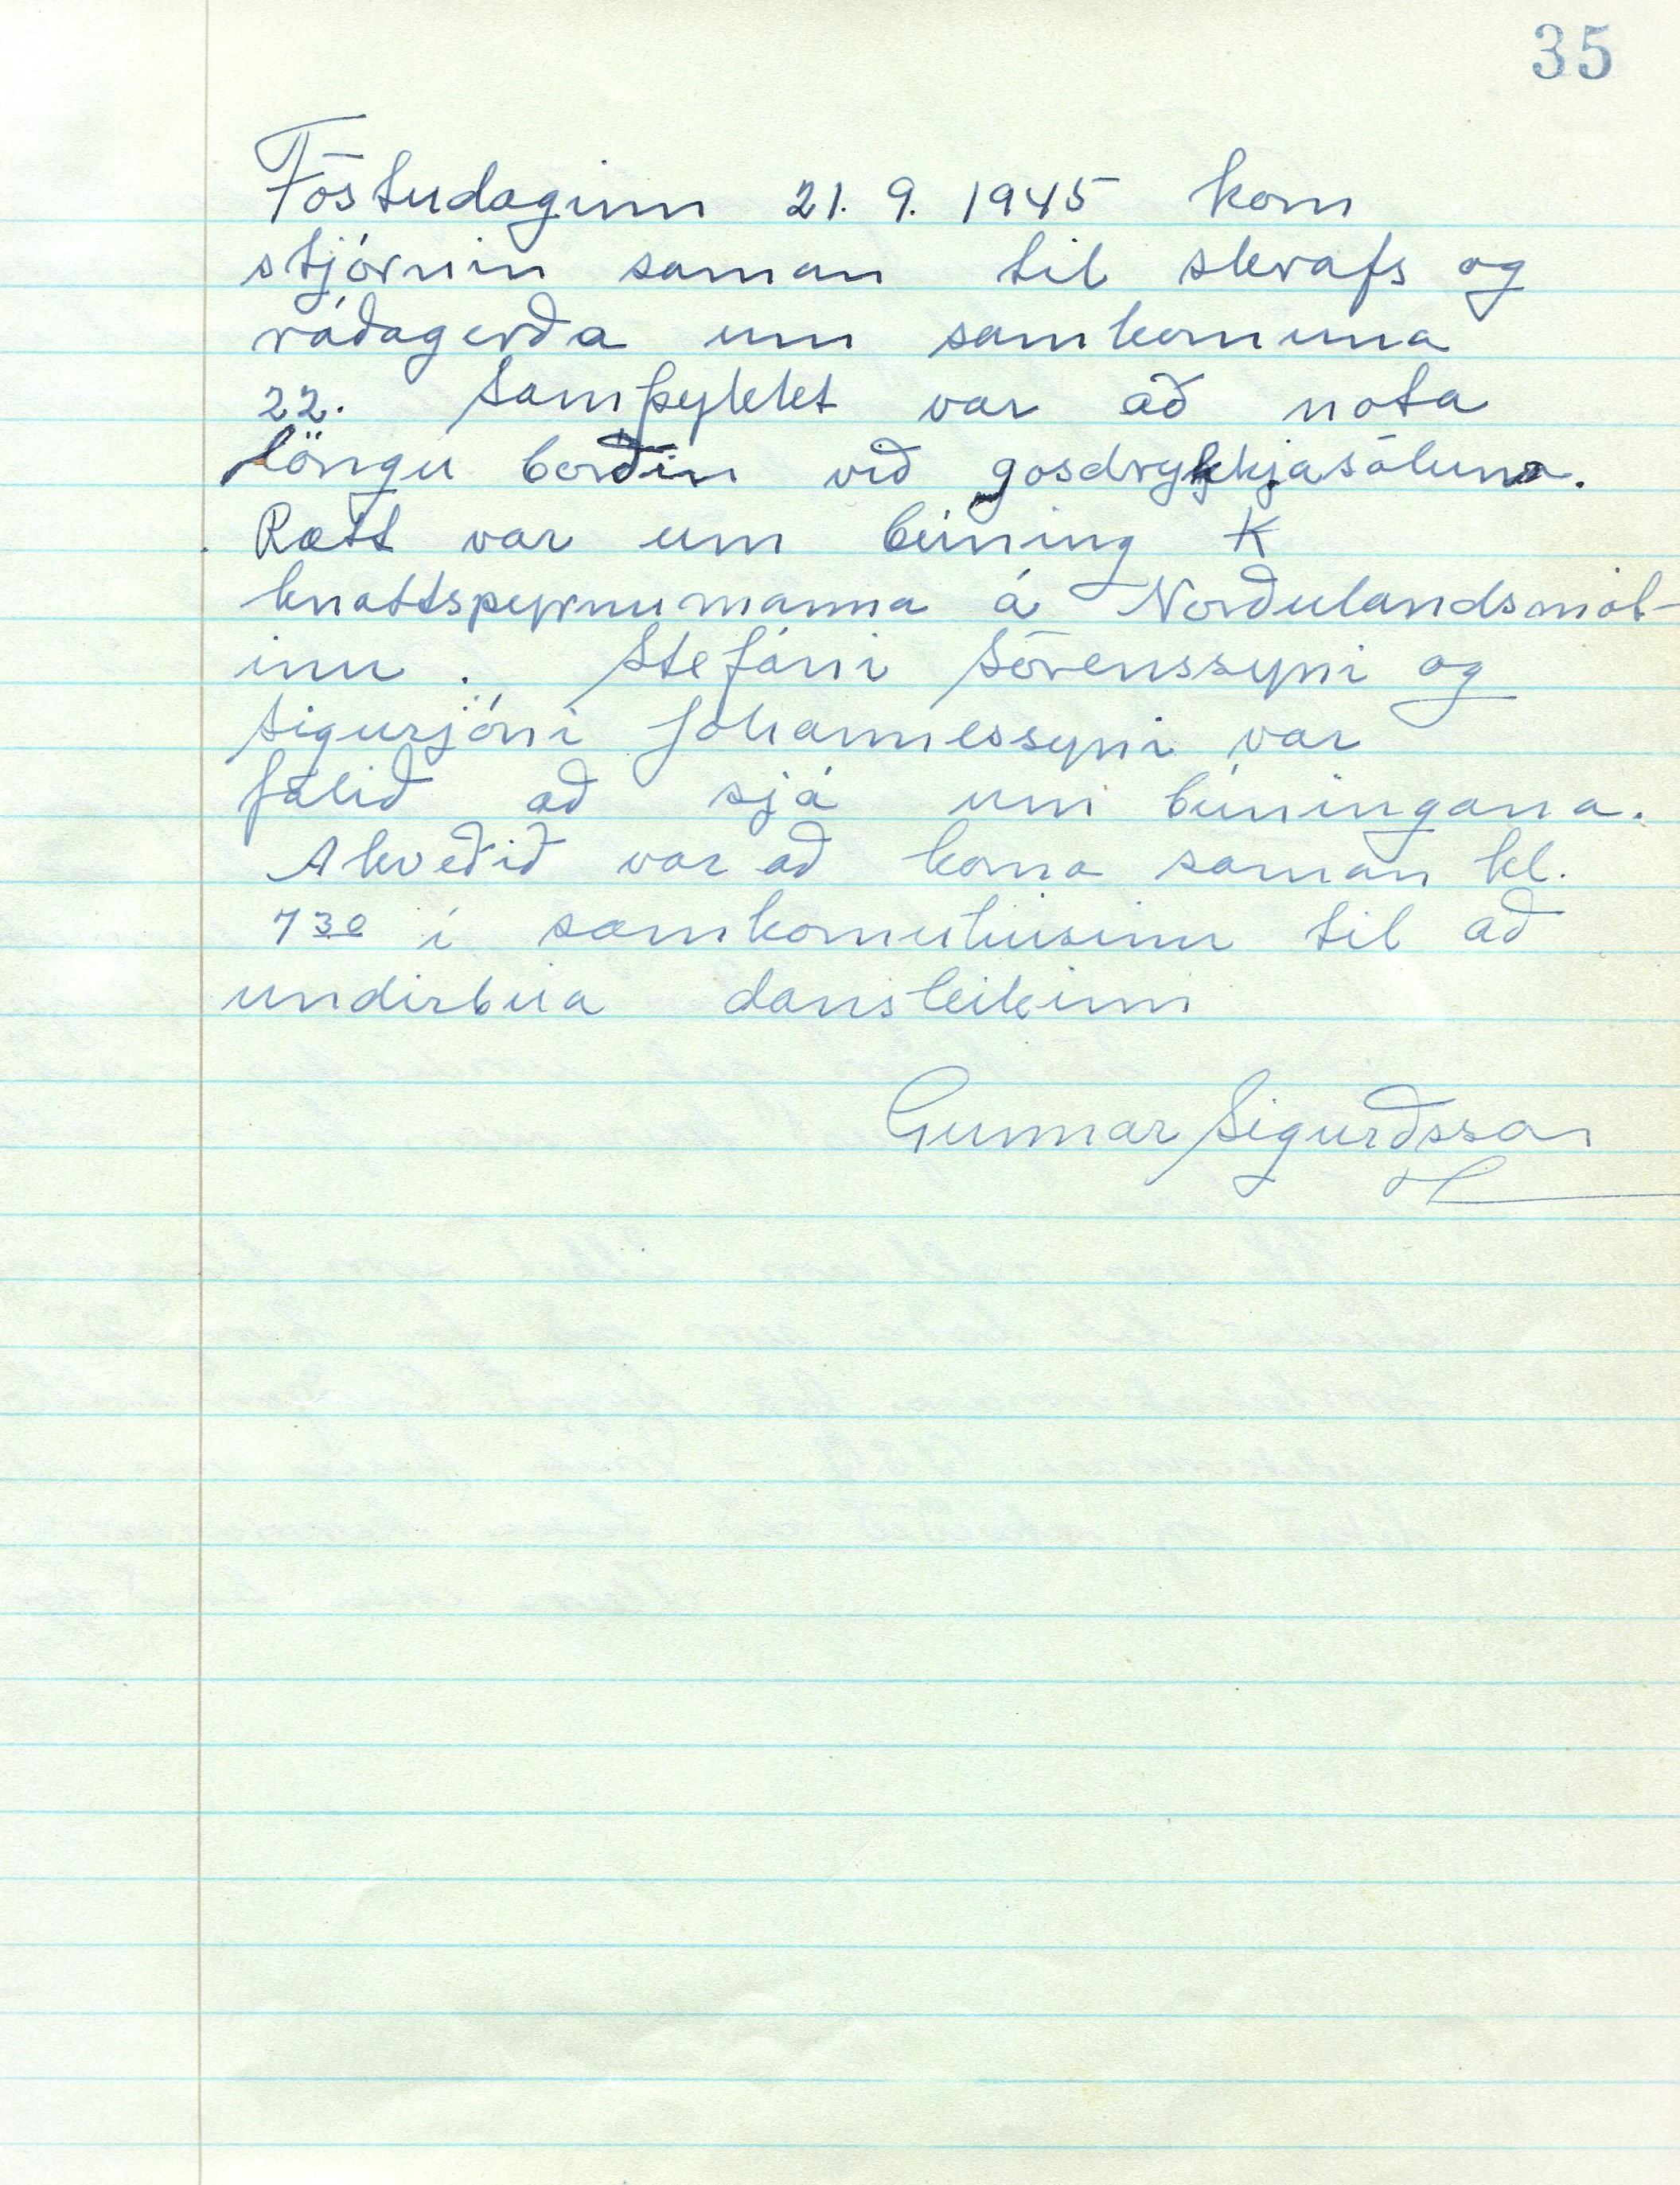 35
Föstudaginn 21. 9. 1945 kom
stjórnin saman til skrafs og
ráðagerða um samkomuna
22. Samþykkt var að nota
löngu borðin við gosdrykkjasöluna.
Rætt var um búning K
knattspyrnumanna á Norðulandsmót-
inu. Stefáni Sörenssyni og
Sigurjóni Jóhannessyni var
falið að sjá um búningana.
Akveðið var að koma saman kl.
7 30 í samkomuhúsinu til að
undirbúa dansleikinn
Gunnar Sigurðsson